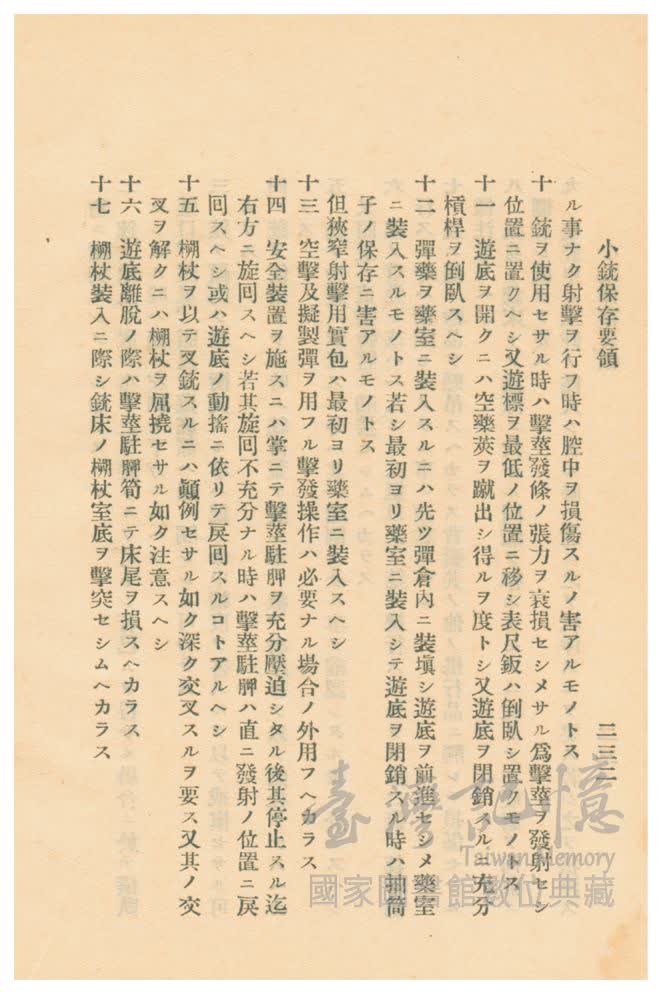 小銃保存要領
二三二
ル事ナク射撃ヲ行フ時ハ腔中ヲ損傷スルノ害アルモノトス
十　銃ヲ使用セサル時ハ擊莖發條ノ張力ヲ衰損セシメサル爲擊莖ヲ發射セシ
位置ニ置クヘシ又遊標ヲ最低ノ位置ニ移シ表尺鈑ハ倒臥シ置クモノトス
十一　遊底ヲ開クニハ空藥莢ヲ蹴出シ得ルヲ度トシ又遊底ヲ閉銷スルニ充分
槓桿ヲ倒臥スヘシ
十二　彈藥ヲ藥室ニ裝入スルニハ先ツ彈倉內ニ裝塡シ遊底ヲ前進セシメ藥室
ニ裝入スルモノトス若シ最初ヨリ藥室ニ裝入シテ遊底ヲ閉銷スル時ハ抽筒
子ノ保存ニ害アルモノトス
但狹窄射擊用實包ハ最初ヨリ藥室ニ裝入スヘシ
十三　空擊及擬製彈ヲ用フル擊發操作ハ必要ナル場合ノ外用フヘカラス
十四　安全裝置ヲ施スニハ掌ニテ擊莖駐胛ヲ充分壓迫シタル後其停止スル迄
右方ニ旋回スヘシ若其旋回不充分ナル時ハ擊莖駐胛ハ直ニ發射ノ位置ニ戾
回スヘシ或ハ遊底ノ動搖ニ依リテ戾回スルコトアルヘシ
十五　棚杖ヲ以テ叉銃スルニハ顚例セサル如ク深ク交叉スルヲ要ス又其ノ交
叉ヲ解クニハ棚杖ヲ屈撓セサル如ク注意スヘシ
十六　遊底離脫ノ際ハ擊莖駐胛筍ニテ床尾ヲ損スヘカラス
十七　棚杖裝入ニ際シ銃床ノ棚杖室底ヲ擊突セシムヘカラス
臺灣記憶
Taiwan Memory
國家圖書館數位典藏